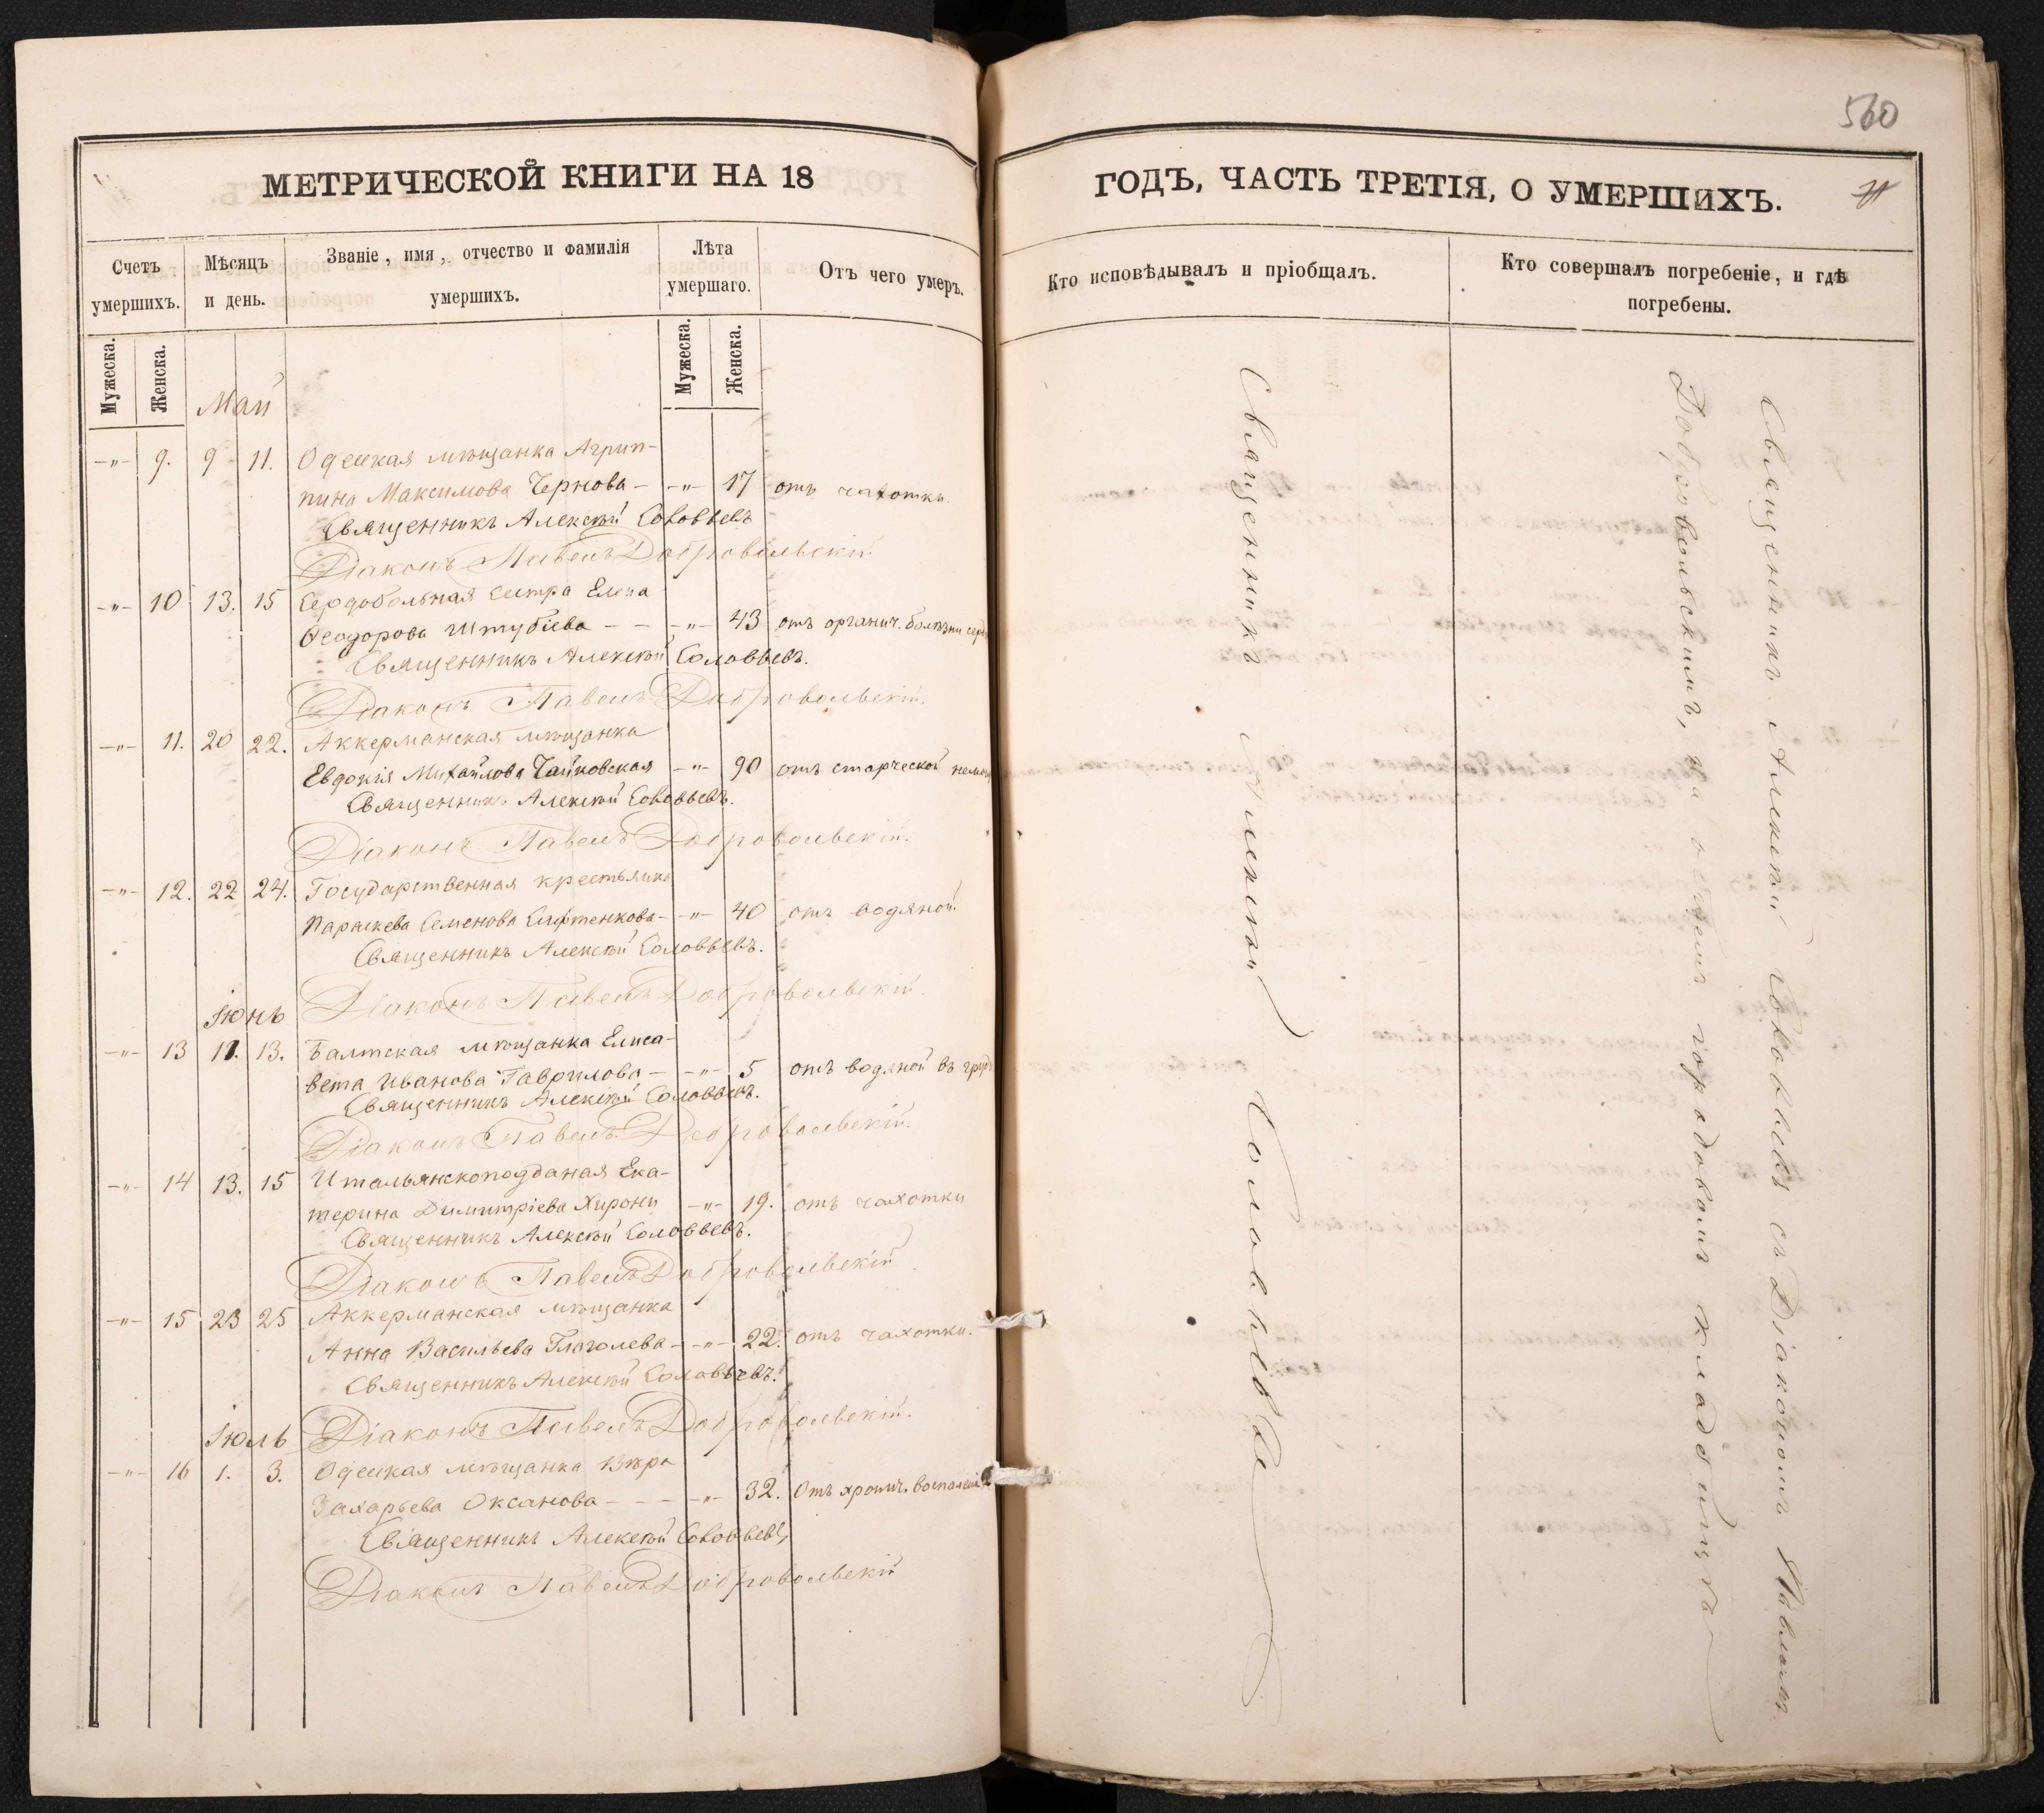 МЕТРИЧЕСКОЙ КНИГИ НА 18
Счетъ умершихъ.
Мѣсяцъ и день.
Званіе, имя, отчество и фамилія умершихъ.
Лѣта умершаго.
Отъ чего умеръ.
Мужеска. Женска. Мужеска. Женска.
Май
-"- 9. 9 11. Одесская мѣщанка Агрип-
пина Максимова Чернова - -"- 17 отъ чахотки.
Священникъ Алексѣй Соловьевъ
Діаконъ Павелъ Добровольскій
-"- 10 13. 15 Сердобольная сестра Елена
Ѳеодорова Штубіева - - -"- 43 отъ органич. болѣзни
Священникъ Алексѣй Соловьевъ.
Діаконъ Павелъ Добровольскій.
-"- 11. 20 22. Аккерманская мѣщанка
Евдокія Михайлова Чайковская -"- 90 отъ старческой
Священникъ Алексѣй Соловьевъ.
Діаконъ Павелъ Добровольскій.
-"- 12. 22 24. Государственная крестьянка
Параскева Семенова - -"- 40 отъ водяной.
Священникъ Алексѣй Соловьевъ.
Діаконъ Павелъ Добровольскій.
Іюнь
-"- 13 11. 13. Балтская мѣщанка Елиса-
вета Иванова Гаврилова - -"- 5 отъ водяной въ
Священникъ Алексѣй Соловьевъ.
Діаконъ Павелъ Добровольскій.
-"- 14 13. 15 Итальянскоподданая Ека-
терина Димитріева Хирони -"- 19. отъ чахотки
Священникъ Алексѣй Соловьевъ.
Діаконъ Павелъ Добровольскій
-"- 15 23 25 Аккерманская мѣщанка
Анна Васильева Глаголева - -"- 22. отъ чахотки.
Священникъ Алексѣй Соловьевъ.
Діаконъ Павелъ Добровольскій.
Іюль
-"- 16 1. 3. Одесская мѣщанка Вѣра
Захарьева Оксанова - - - -"- 32. Отъ хронич.
Священникъ Алексѣй Соловьевъ,
Діаконъ Павелъ Добровольскій
560
ГОДЪ, ЧАСТЬ ТРЕТІЯ, О УМЕРШИХЪ.
Кто исповѣдывалъ и пріобщалъ.
Кто совершалъ погребеніе, и гдѣ
погребены.
Священникъ Алексѣй Соловьевъ
Священникъ Алексѣй Соловьевъ съ Діакономъ Павломъ
Добровольскимъ, на общемъ городовомъ кладбищѣ